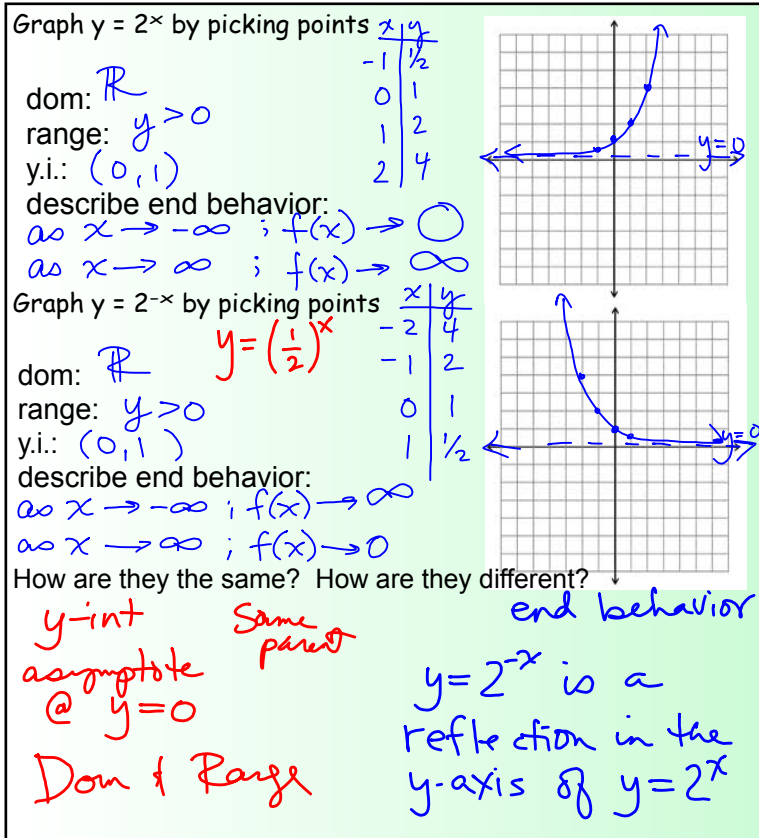 Graph y = 2ˣ by picking points
x | y
-1 | 1/2
0 | 1
1 | 2
2 | 4
dom: ℝ
range: y > 0
y.i.: (0, 1)
describe end behavior:
as x → -∞ ; f(x) → 0
as x → ∞ ; f(x) → ∞
y=0
Graph y = 2⁻ˣ by picking points
y = (1/2)ˣ
x | y
-2 | 4
-1 | 2
0 | 1
1 | 1/2
dom: ℝ
range: y > 0
y.i.: (0, 1)
describe end behavior:
as x → -∞ ; f(x) → ∞
as x → ∞ ; f(x) → 0
y=0
How are they the same? How are they different?
y-int
asymptote
@ y=0
Dom & Range
Same
parent
end behavior
y=2⁻ˣ is a
reflection in the
y-axis of y=2ˣ